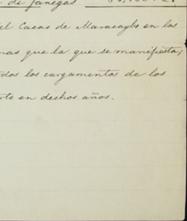 de fanegas
el Cacao de Maracaybo en los
mas que la que se manifiesta,
dos los cargamentos de los
en dechos años.